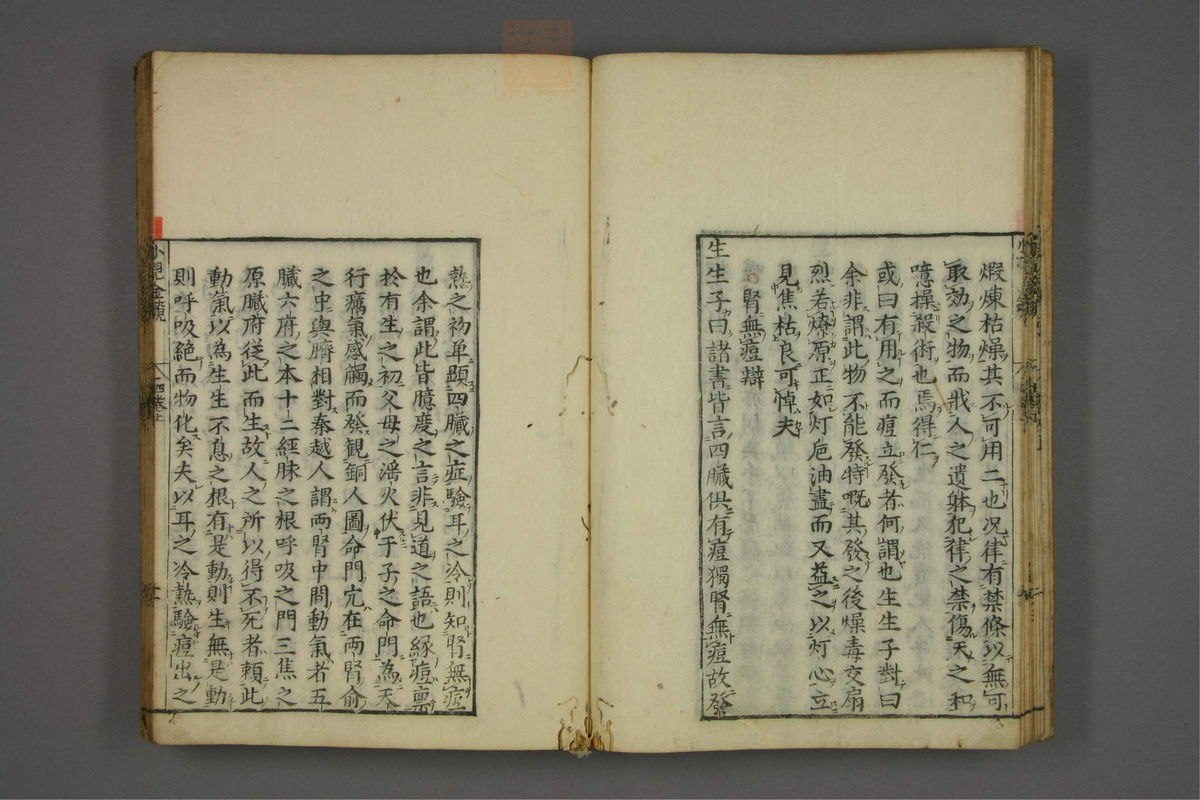 煆煉枯燥其不可用二也况律有禁條以無可
取効之物而戕人之遺躰犯律之禁傷天之和
噫操殺術也焉得仁
或曰有用之而痘立發者何謂也生生子對曰
余非謂此物不能發特嘅其發之後燥毒交扇
烈若燎原正如灯巵油盡而又益之以灯心立
見焦枯良可悼夫
腎無痘辯
生生子曰諸書皆言四臓俱有痘獨腎無痘故發
熱之初单題四臓之症驗耳之冷則知腎無痘
也余謂此皆臆度之言非見道之語也縁痘禀
扵有生之初父母之滛火伏于子之命門為天
行癘氣感觸而發觀銅人圖命門宂在両腎俞
之中與臍相對秦越人謂両腎中間動氣者五
臓六府之本十二經脉之根呼吸之門三焦之
原臓府従此而生故人之所以得不死者頼此
動氣以為生生不息之根有是動則生無是動
則呼吸絶而物化矣夫以耳之冷熱驗痘出之